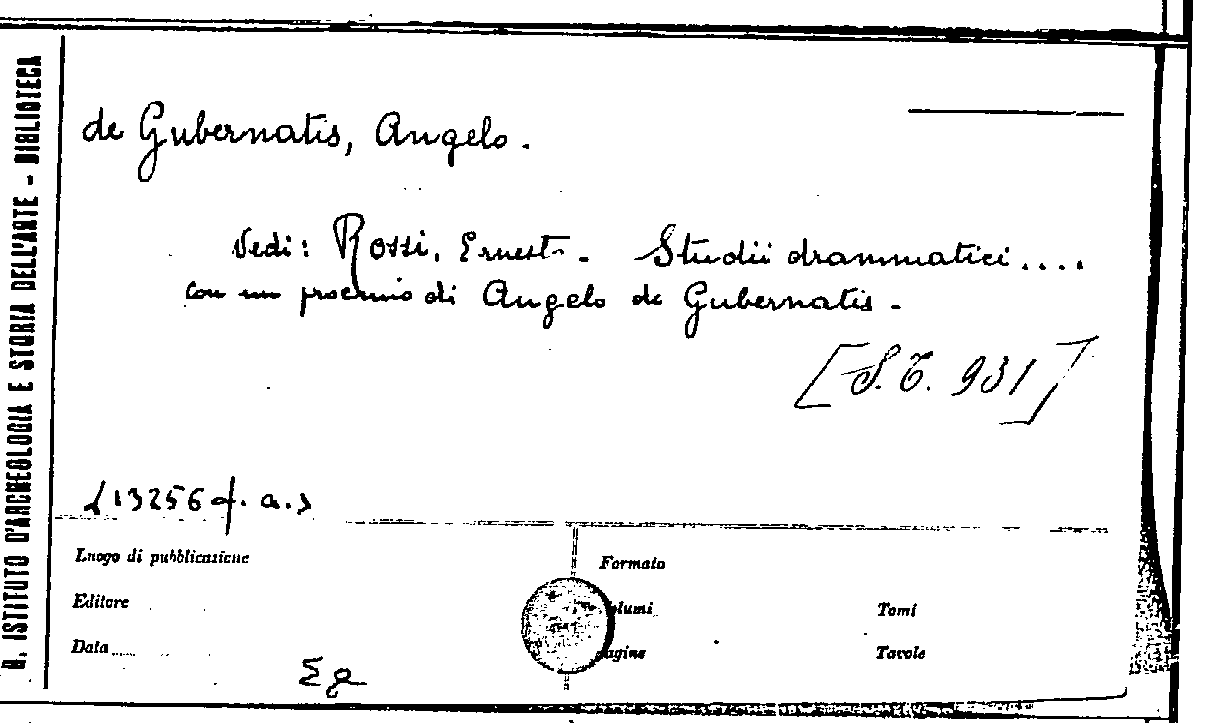 R. ISTITUTO D'ARCHEOLOGIA E STORIA DELL'ARTE - BIBLIOTECA
de Gubernatis, Angelo.
Vedi: Rossi, Ernesto - Studii drammatici....
con un proemio di Angelo de Gubernatis -
[S.T. 931]
(13256 f. a.)
Luogo di pubblicazione
Formato
Editore
Volumi
Tomi
Data
Pagine
Tavole